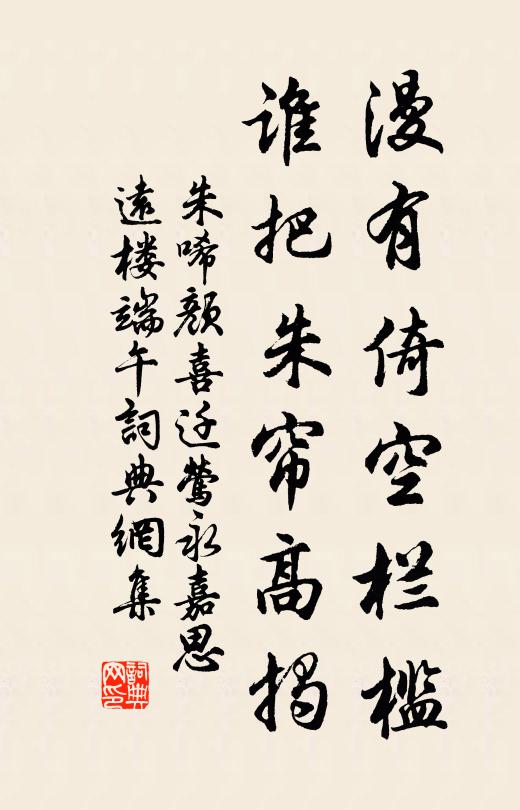 漫有倚空栏槛
谁把朱帘高揭
朱唏颜喜迁莺永嘉思
遠楼端午詞典網集
詞典网印